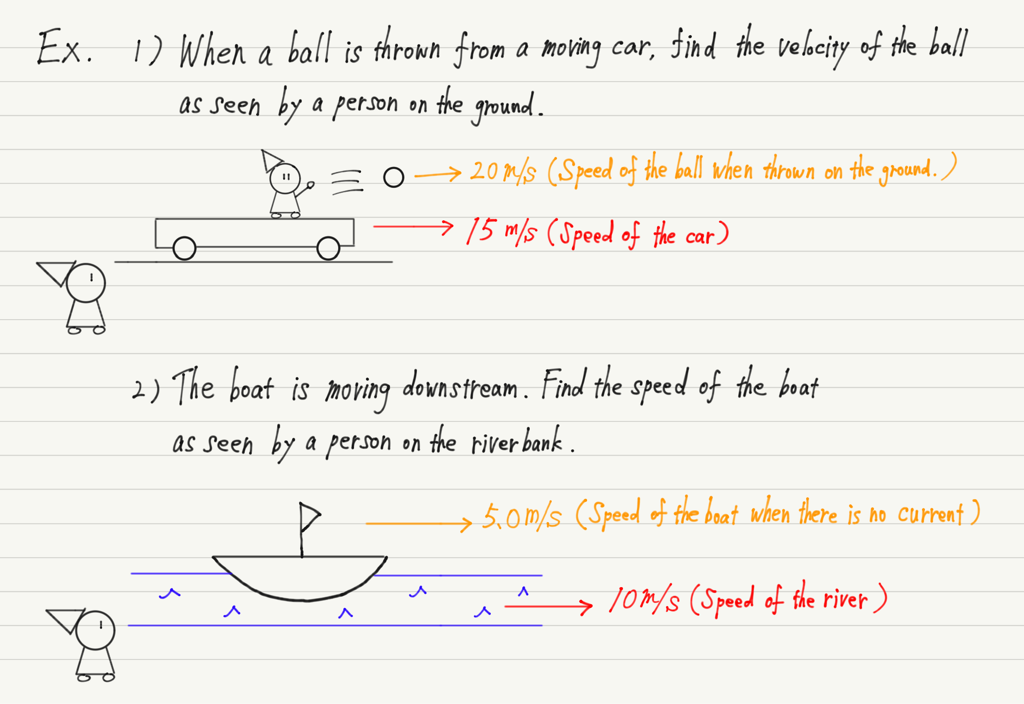 Ex. 1) When a ball is thrown from a moving car, find the velocity of the ball
as seen by a person on the ground.
20m/s (Speed of the ball when thrown on the ground.)
15 m/s (Speed of the car)
2) The boat is moving downstream. Find the speed of the boat
as seen by a person on the riverbank.
5.0m/s (Speed of the boat when there is no current)
10m/s (Speed of the river)